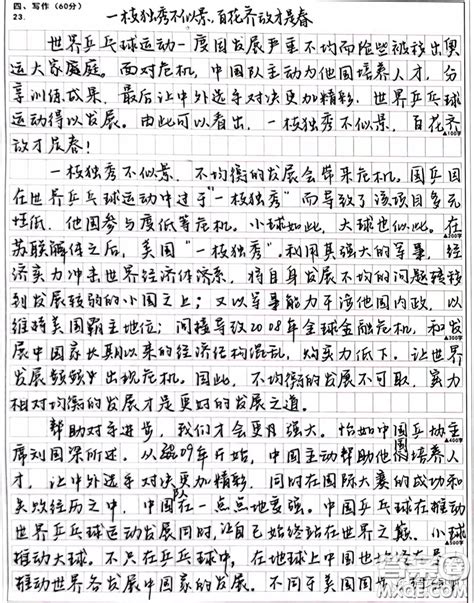 四、写作(60分)
23.
一枝独秀不似景,百花齐放才是春
世界乒乓球运动一度因发展严重不均而险些被移出奥
运大家庭。而对危机,中国队主动为他国培养人才,分
享训练成果,最后让中外选手对决更加精彩,世界乒乓球
运动得以发展。由此可以看出,一枝独秀不似景,百花齐
放才是春!
一枝独秀不似景,不均衡的发展会带来危机。国乒因
在世界乒乓球运动中过于“一枝独秀”而导致了该项目多元
性低,他国参与度低等危机。小球如此,大球也似此。在
苏联解体之后,美国“一枝独秀”,利用其强大的军事,经
济实力冲击世界经济体系,将自身发展不均的问题转移
到发展较弱的小国之上;又以军事能力干涉他国内政,以
维持美国霸主地位;间接导致2008年全球金融危机,和发
展中国家长期以来的经济结构混乱,购买力低下,让世界
发展频频出现危机。因此,不均衡的发展不可取,实力
相对均衡的发展才是更好的发展之道。
帮助对手进步,我们才会更加强大。恰如中国乒协主
席刘国梁所述,从09年开始,中国主动帮助他国培养人
才,让中外选手对决更加精彩,同时在国际大赛的成功和
失败经历之中,中国队在一点点地变强。中国乒乓球在推动
世界乒乓球运动发展同时,让自己始终站在世界之巅。小球
推动大球。不只在乒乓球中,在地球上中国也始终在
推动世界各发展中国家的发展。不同于美国国